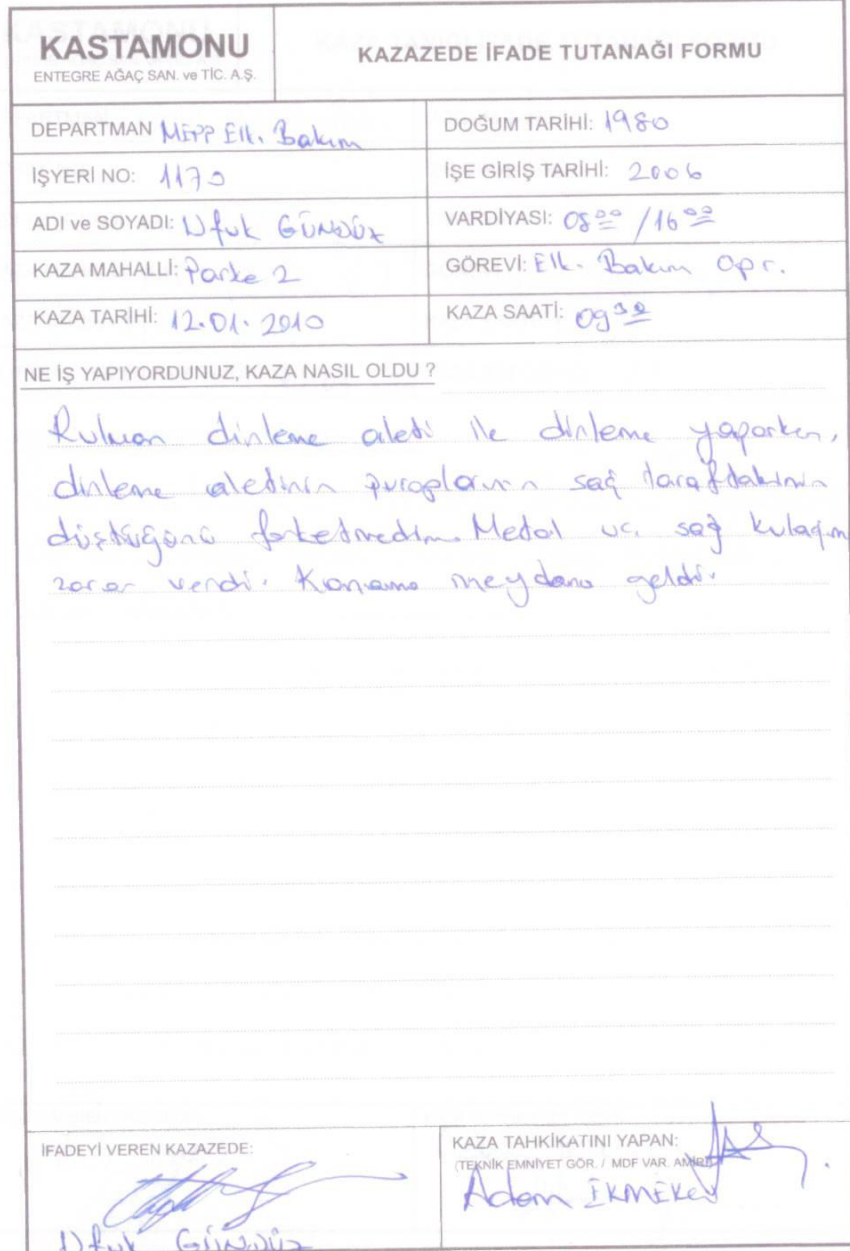 KASTAMONU
ENTEGRE AĞAÇ SAN. ve TİC. A.Ş.
KAZAZEDE İFADE TUTANAĞI FORMU
DEPARTMAN MFPP Elk. Bakım
DOĞUM TARİHİ: 1980
İŞYERİ NO: 1170
İŞE GİRİŞ TARİHİ: 2006
ADI ve SOYADI: Ufuk GÜNDÜZ
VARDİYASI: 08 00 / 16 00
KAZA MAHALLİ: Parke 2
GÖREVİ: Elk. Bakım Opr.
KAZA TARİHİ: 12.01.2010
KAZA SAATİ: 09 30
NE İŞ YAPIYORDUNUZ, KAZA NASIL OLDU ?
Rulman dinleme aleti ile dinleme yaparken,
dinleme aletinin puroplarının sağ taraftakinin
düştüğünü farketmedim. Metal uc. sağ kulağım
zarar verdi. Kanama meydana geldi.
İFADEYİ VEREN KAZAZEDE:
Ufuk GÜNDÜZ
KAZA TAHKİKATINI YAPAN:
(TEKNİK EMNİYET GÖR. / MDF VAR. AMİRİ)
Adem EKMEKCİ